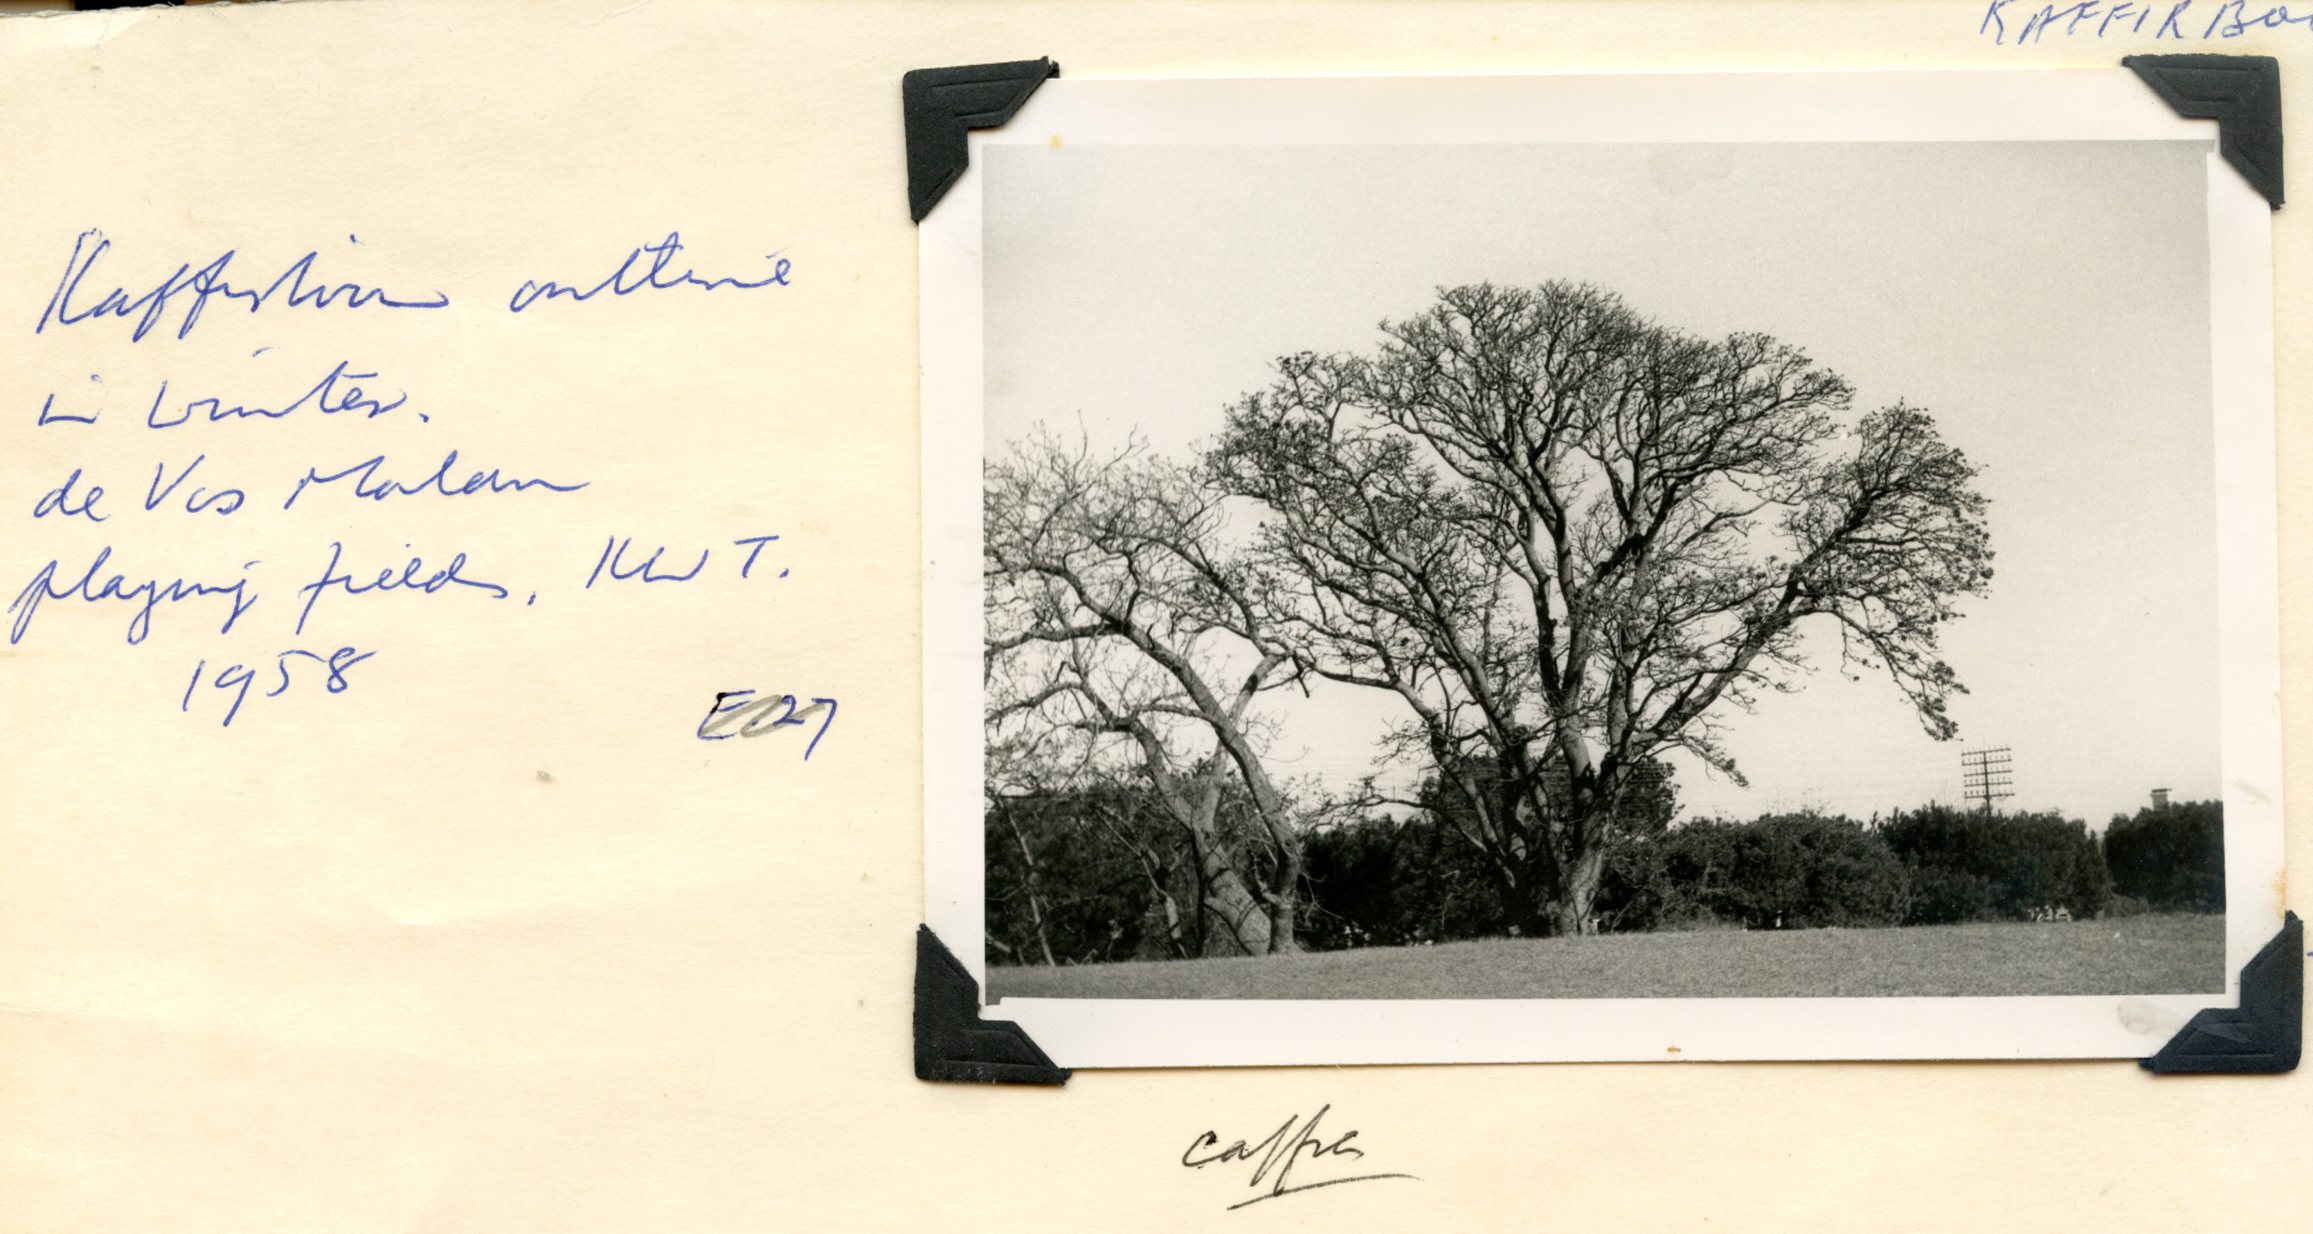 KAFFIRBOO
Kaffirboom outline
in winter.
de Vos Malan
playing fields, KWT.
1958
E.27
caffra